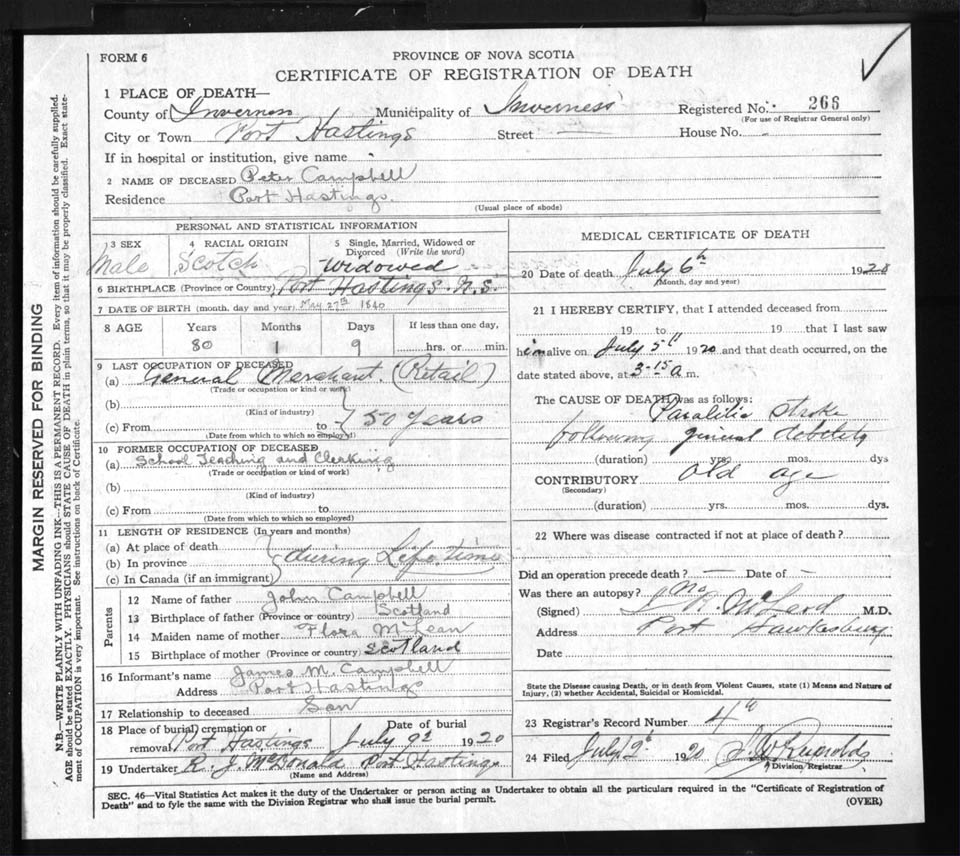 FORM 6
PROVINCE OF NOVA SCOTIA
CERTIFICATE OF REGISTRATION OF DEATH
1 PLACE OF DEATH—
County of Inverness Municipality of Inverness Registered No. 266
(For use of Registrar General only)
City or Town Port Hastings Street — House No. -
If in hospital or institution, give name
2 NAME OF DECEASED Peter Campbell
Residence Port Hastings.
(Usual place of abode)
PERSONAL AND STATISTICAL INFORMATION
3 SEX 4 RACIAL ORIGIN 5 Single, Married, Widowed or Divorced (Write the word)
Male Scotch Widowed
6 BIRTHPLACE (Province or Country) Port Hastings. N.S.
7 DATE OF BIRTH (month, day and year) May 27th 1840
8 AGE Years Months Days If less than one day,
80 1 9 hrs. or min.
9 LAST OCCUPATION OF DECEASED
(a) General Merchant. (Retail)
(Trade or occupation or kind or work)
(b)
(Kind of industry)
(c) From to 50 years
(Date from which to which so employed)
10 FORMER OCCUPATION OF DECEASED
(a) School Teaching and Clerking
(Trade or occupation or kind of work)
(b)
(Kind of industry)
(c) From to
(Date from which to which so employed)
11 LENGTH OF RESIDENCE (In years and months)
(a) At place of death
(b) In province during Life time
(c) In Canada (if an immigrant)
Parents
12 Name of father John Campbell
13 Birthplace of father (Province or country) Scotland
14 Maiden name of mother Flora McLean
15 Birthplace of mother (Province or country) Scotland
16 Informant's name James M. Campbell
Address Port Hastings
17 Relationship to deceased Son
18 Place of burial, cremation or removal Port Hastings Date of burial July 9 1920
19 Undertaker R. J. McDonald Port Hastings
(Name and Address)
MEDICAL CERTIFICATE OF DEATH
20 Date of death July 6th 1920
(Month, day and year)
21 I HEREBY CERTIFY, that I attended deceased from
19 to 19 that I last saw
him alive on July 5th 1920 and that death occurred, on the
date stated above, at 3-15 a m.
The CAUSE OF DEATH was as follows:
Paralitic stroke
following general debelity
(duration) yrs. mos. dys
CONTRIBUTORY Old age
(Secondary)
(duration) yrs. mos. dys.
22 Where was disease contracted if not at place of death?
Did an operation precede death? — Date of —
Was there an autopsy? No
(Signed) McLeod M.D.
Address Port Hawkesbury
Date
State the Disease causing Death, or in death from Violent Causes, state (1) Means and Nature of
Injury, (2) whether Accidental, Suicidal or Homicidal.
23 Registrar's Record Number 4
24 Filed July 1920 Reynolds
Division Registrar
SEC. 46—Vital Statistics Act makes it the duty of the Undertaker or person acting as Undertaker to obtain all the particulars required in the "Certificate of Registration of
Death" and to fyle the same with the Division Registrar who shall issue the burial permit.
(OVER)
MARGIN RESERVED FOR BINDING
N.B.—WRITE PLAINLY WITH UNFADING INK—THIS IS A PERMANENT RECORD. Every item of information should be carefully supplied.
AGE should be stated EXACTLY. PHYSICIANS should STATE CAUSE OF DEATH in plain terms, so that it may be properly classified. Exact state-
ment of OCCUPATION is very important. See instructions on back of Certificate.